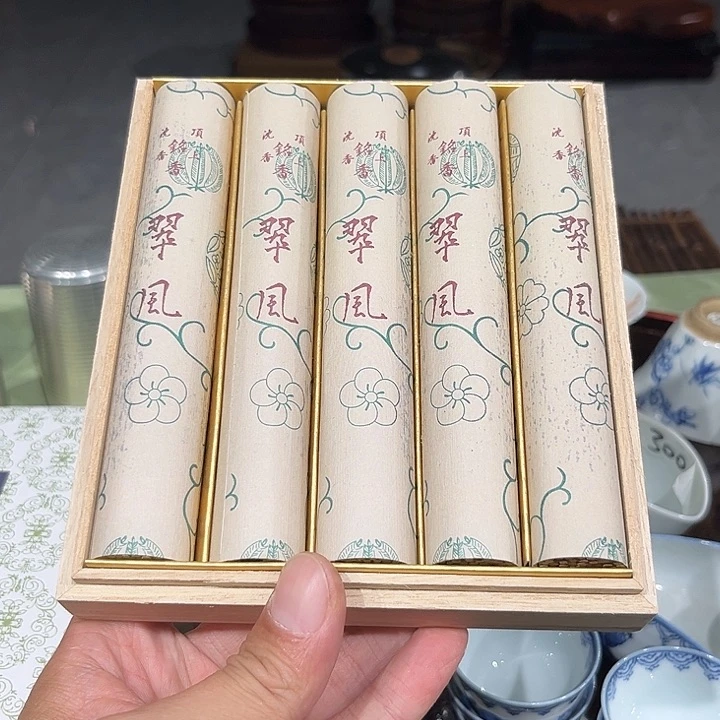 頂上
銘香
沈香
翠風
頂上
銘香
沈香
翠風
頂上
銘香
沈香
翠風
頂上
銘香
沈香
翠風
銘香
沈香
翠風
300